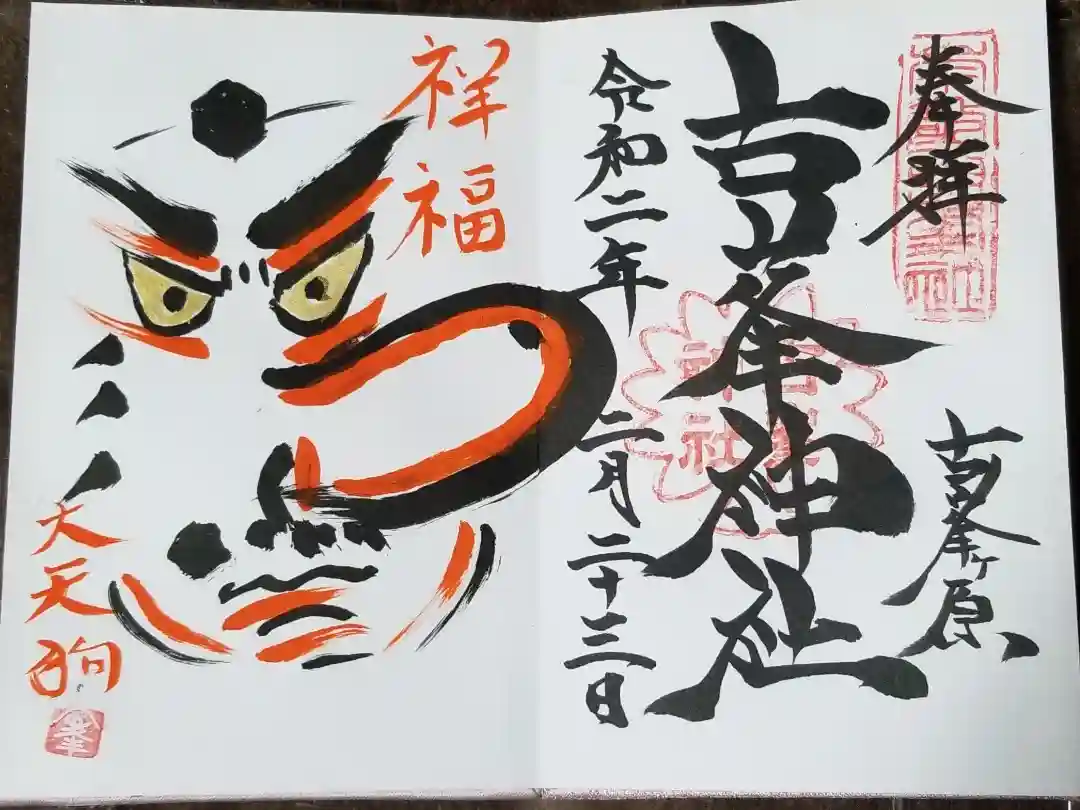 奉拝
古峯ヶ原
古峯神社
令和二年二月二十三日
祥福
大天狗